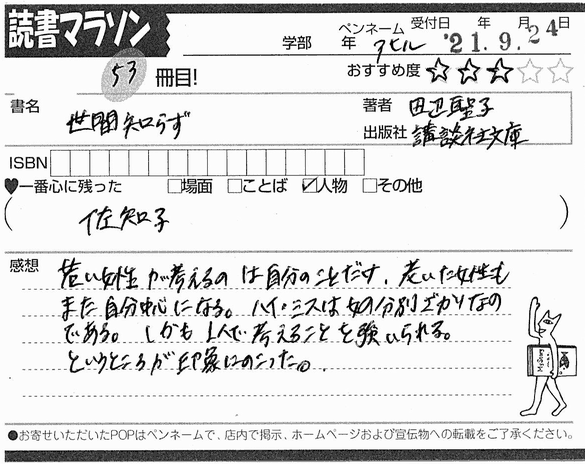 読書マラソン
学部 年 ペンネーム アヒル 受付日 年 月 日 '21.9.24
53 冊目!
おすすめ度 ☆☆☆☆☆
書名 世間知らず
著者 田辺聖子
出版社 講談社文庫
ISBN
♥一番心に残った □場面 □ことば ☑人物 □その他
( 佐知子 )
感想 若い女性が考えるのは自分のことだけ、老いた女性も
また自分中心になる。ハイ・ミスは女の分別ざかりなの
である。しかも1人で考えることを強いられる。
というところが印象にのこった。
●お寄せいただいたPOPはペンネームで、店内で掲示、ホームページおよび宣伝物への転載をご了承ください。